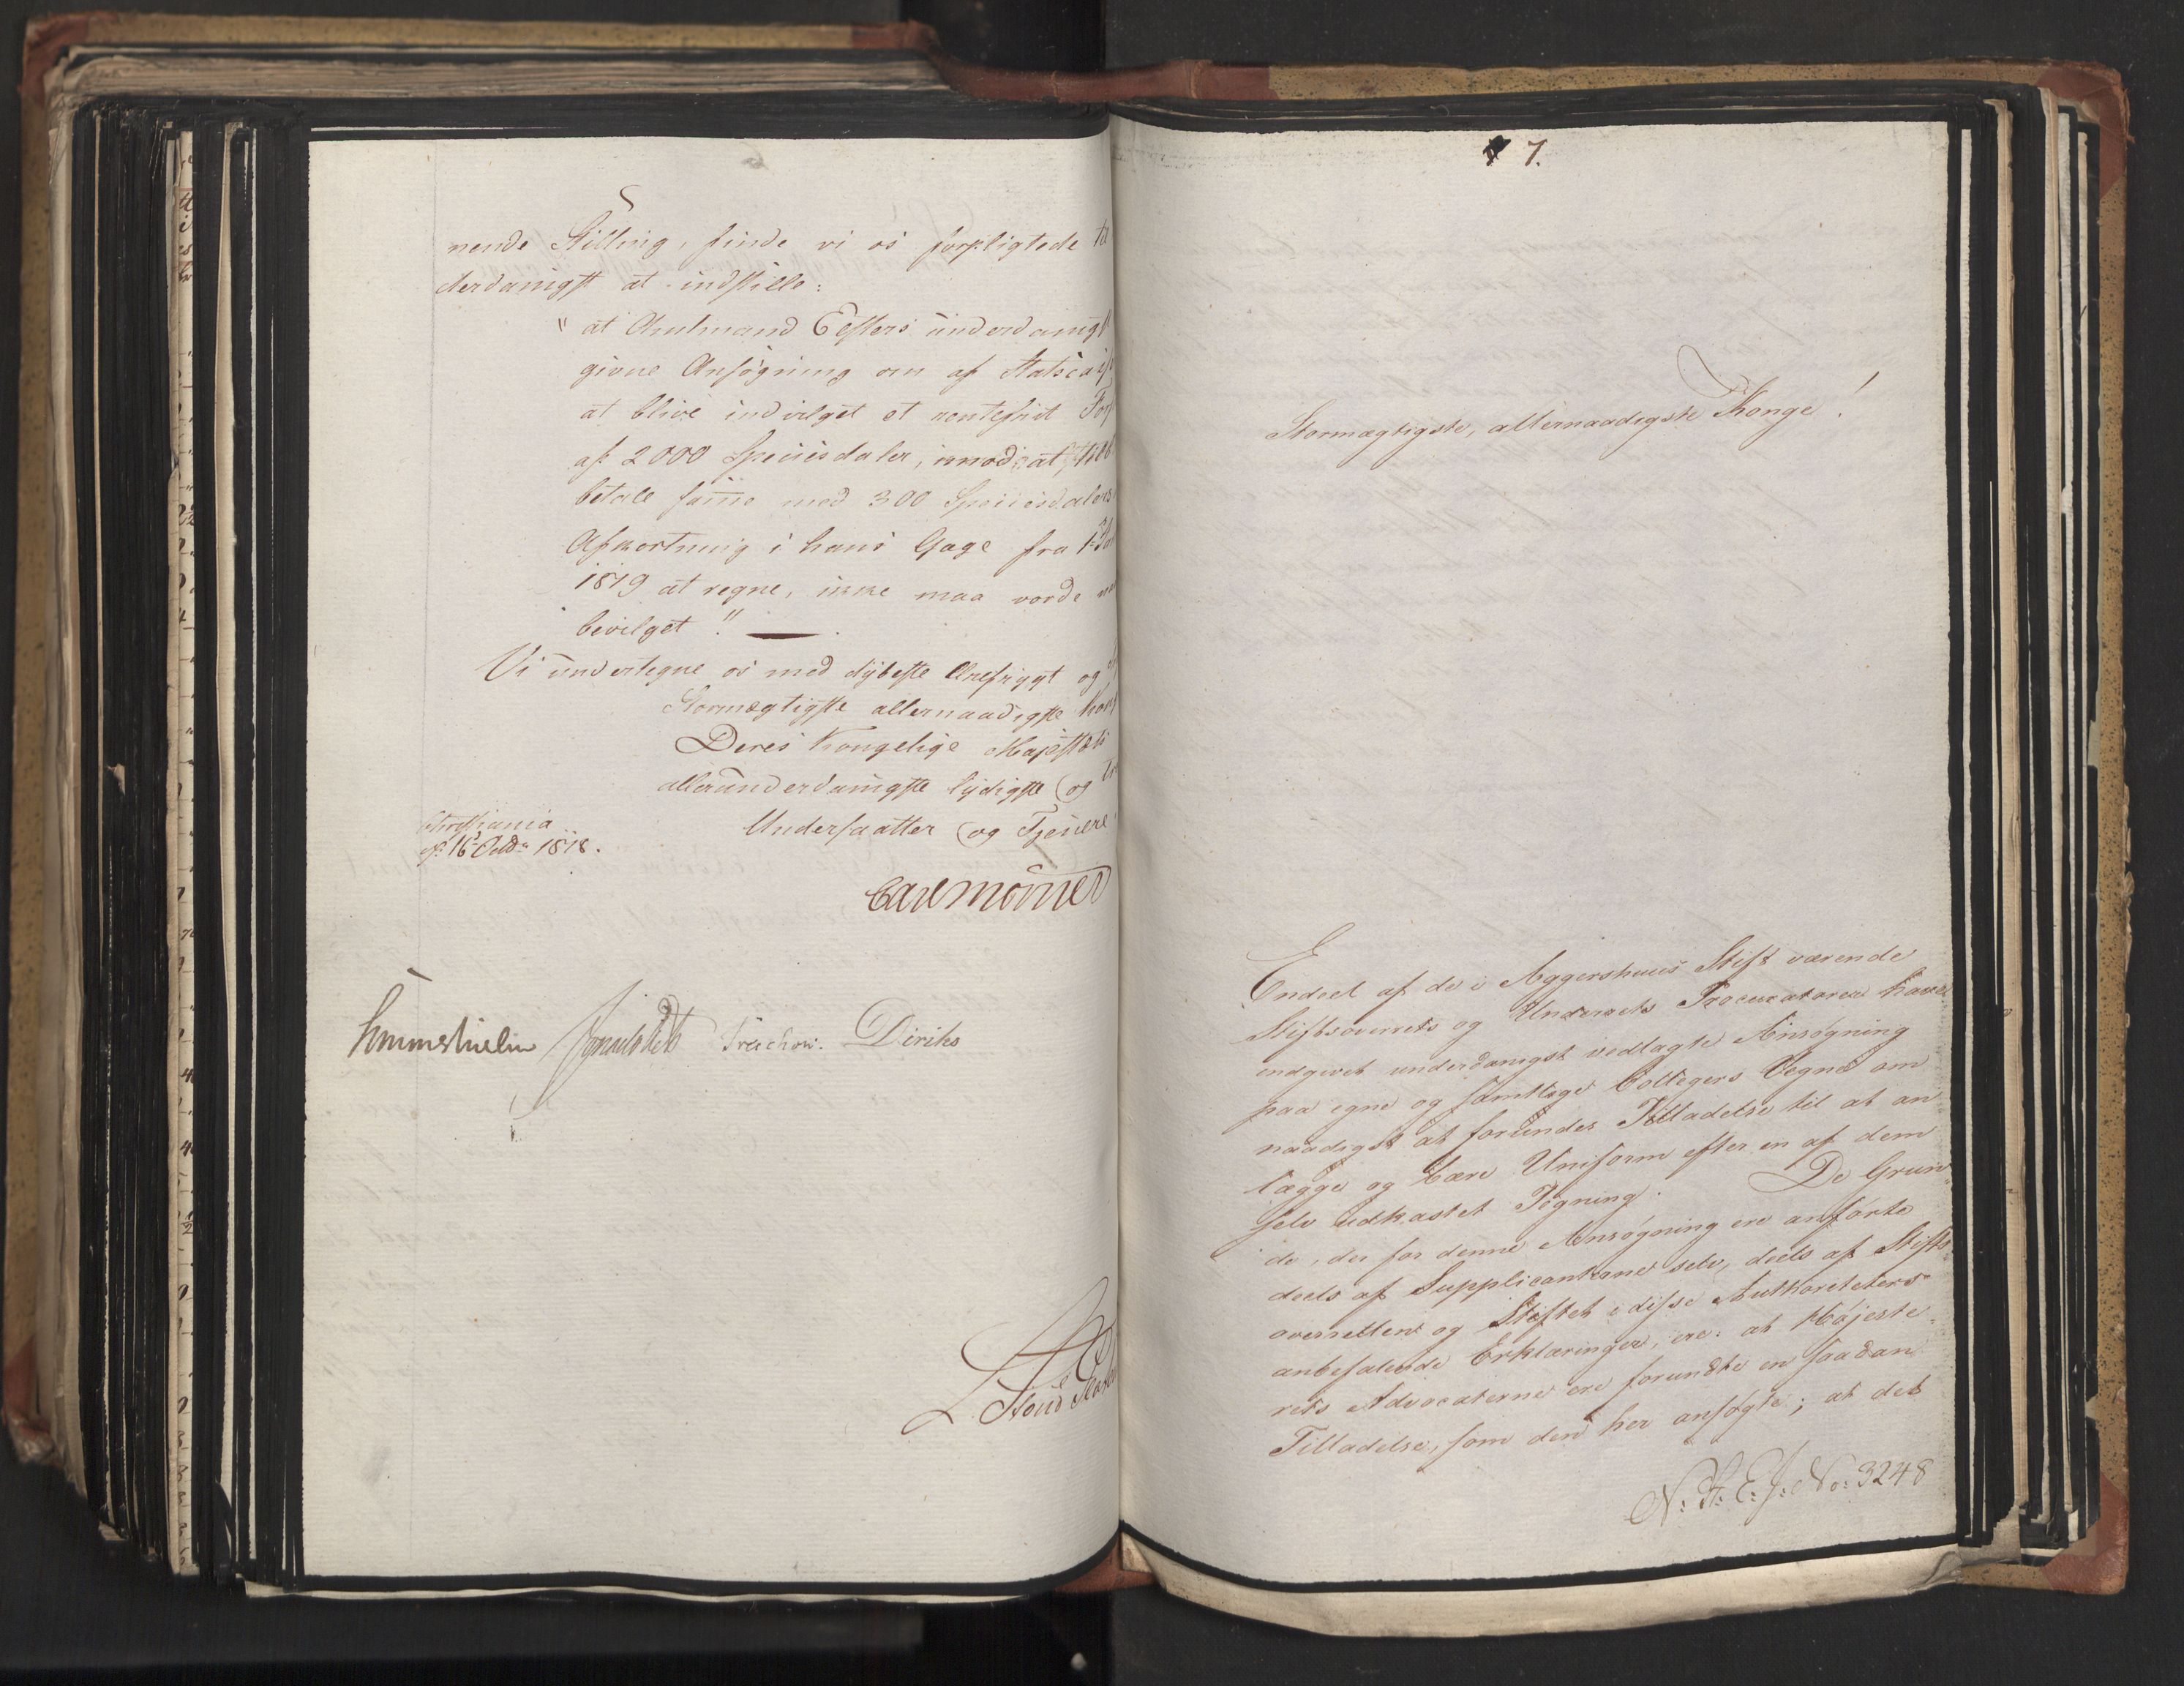 nende Stilling, finde vi os forpligtede
derdanigst at indstille:
"at Amtmand Eesters underdanigst
givne Ansögning om af Statscass
at blive indvilget et rentefrit For
af 2000 Speciesdaler, imod at tilb
betale samme med 300 Speciesdalers
Afkortning i hans Gage fra 1ste
1819 at regne, ikke maa vorde
bevilget."
Vi undertegne os med dybeste Ærefrygt og
Stormægtigste allernaadigste Kon
Deres Kongelige Majestæts
allerunderdanigste lydigste og tro
Undersaatter og Tjenere
Christiania
d. 16 Octbr 1818.
Carl Mörner
Hummelhielm Sommerfeldt Treschow. Diriks
7.
Stormægtigste, allernaadigste Konge!
Endeel af de i Aggershuus Stift værende
Stiftsoverrets og Underrets Procuratorer have
indgivet underdanigst vedlagte Ansøgning
paa egne og samtlige Collegers Vegne om
naadigst at forundes Tilladelse til at an
lægge og bære Uniform efter en af dem
selv udkastet Tegning. De Grun
de, der for denne Ansøgning ere anførte
deels af Supplicanterne selv, deels af Stifts
overretten og Stiftet i disse Authoriteters
anbefalende Erklæringer, ere: at Højeste
rets Advocaterne ere forundte en saadan
Tilladelse, som den her ansøgte; at det
N: St: E: J: No: 3248